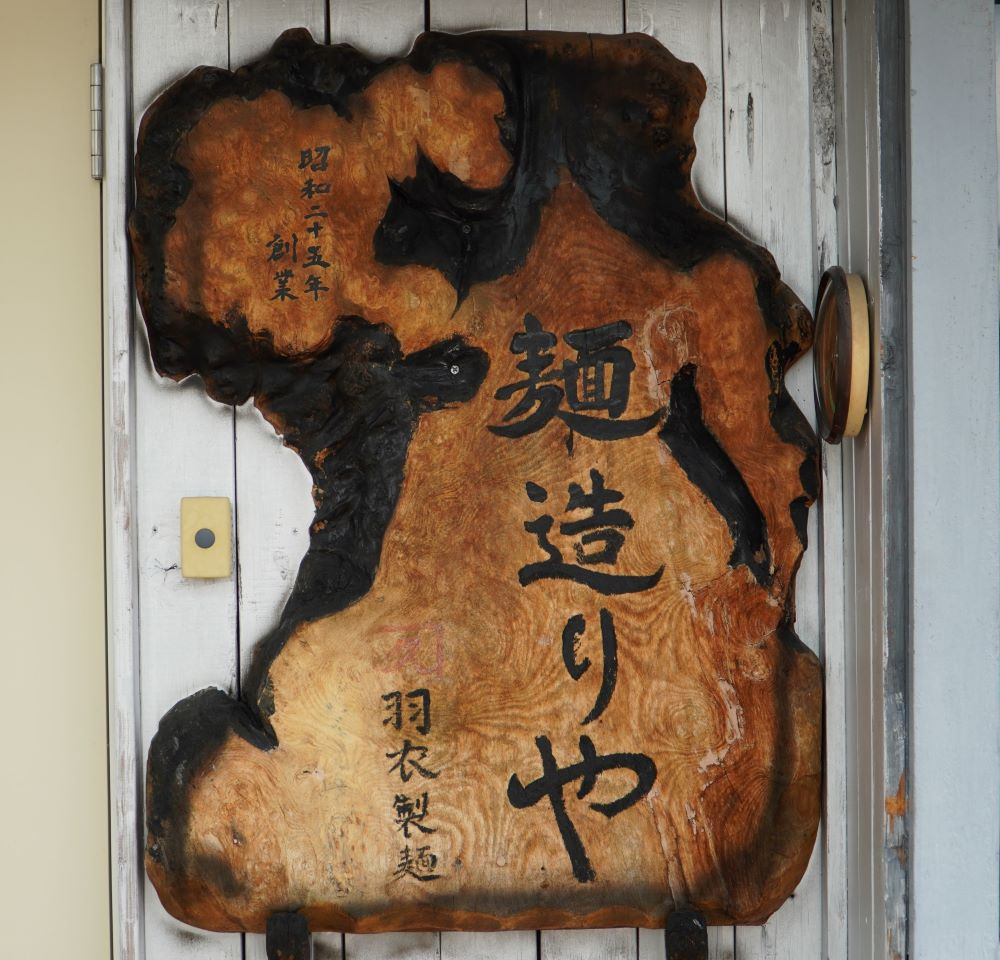 昭和二十五年
創業
麺造りや
羽衣製麺